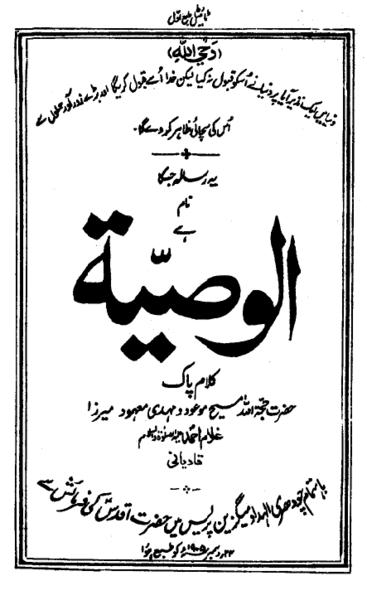 ٹائیٹل طبع اول
(وحی اللہ)
دنیا میں ایک نذیر آیا پر دنیا نے اُسکو قبول نہ کیا لیکن خدا اُسے قبول کریگا اور بڑے زور آور حملوں سے
اُس کی سچائی ظاہر کر دے گا۔
یہ رسالہ جسکا
نام
ہے
الوصیّة
کلام پاک
حضرت حجۃ اللہ مسیح موعود و مہدی معہود میرزا
غلام احمد علیہ الصلوٰۃ والسلام
قادیانی
باہتمام چودھری الہداد میگزین پریس میں حضرت اقدس کی فرمائش سے
۲۴ دسمبر ۱۹۰۵ء کو طبع ہوا